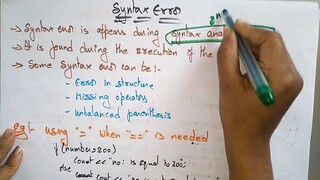 Syntax Error
→ Syntax error is appears during Syntax ana
→ It is found during the execution of the
→ Some Syntax error can be :-
- Error in structure
- Missing operators
- Unbalanced paranthesis
Eg:- using "=" when "==" is needed
if (number=200)
cout << "no: is equal to 200;
else